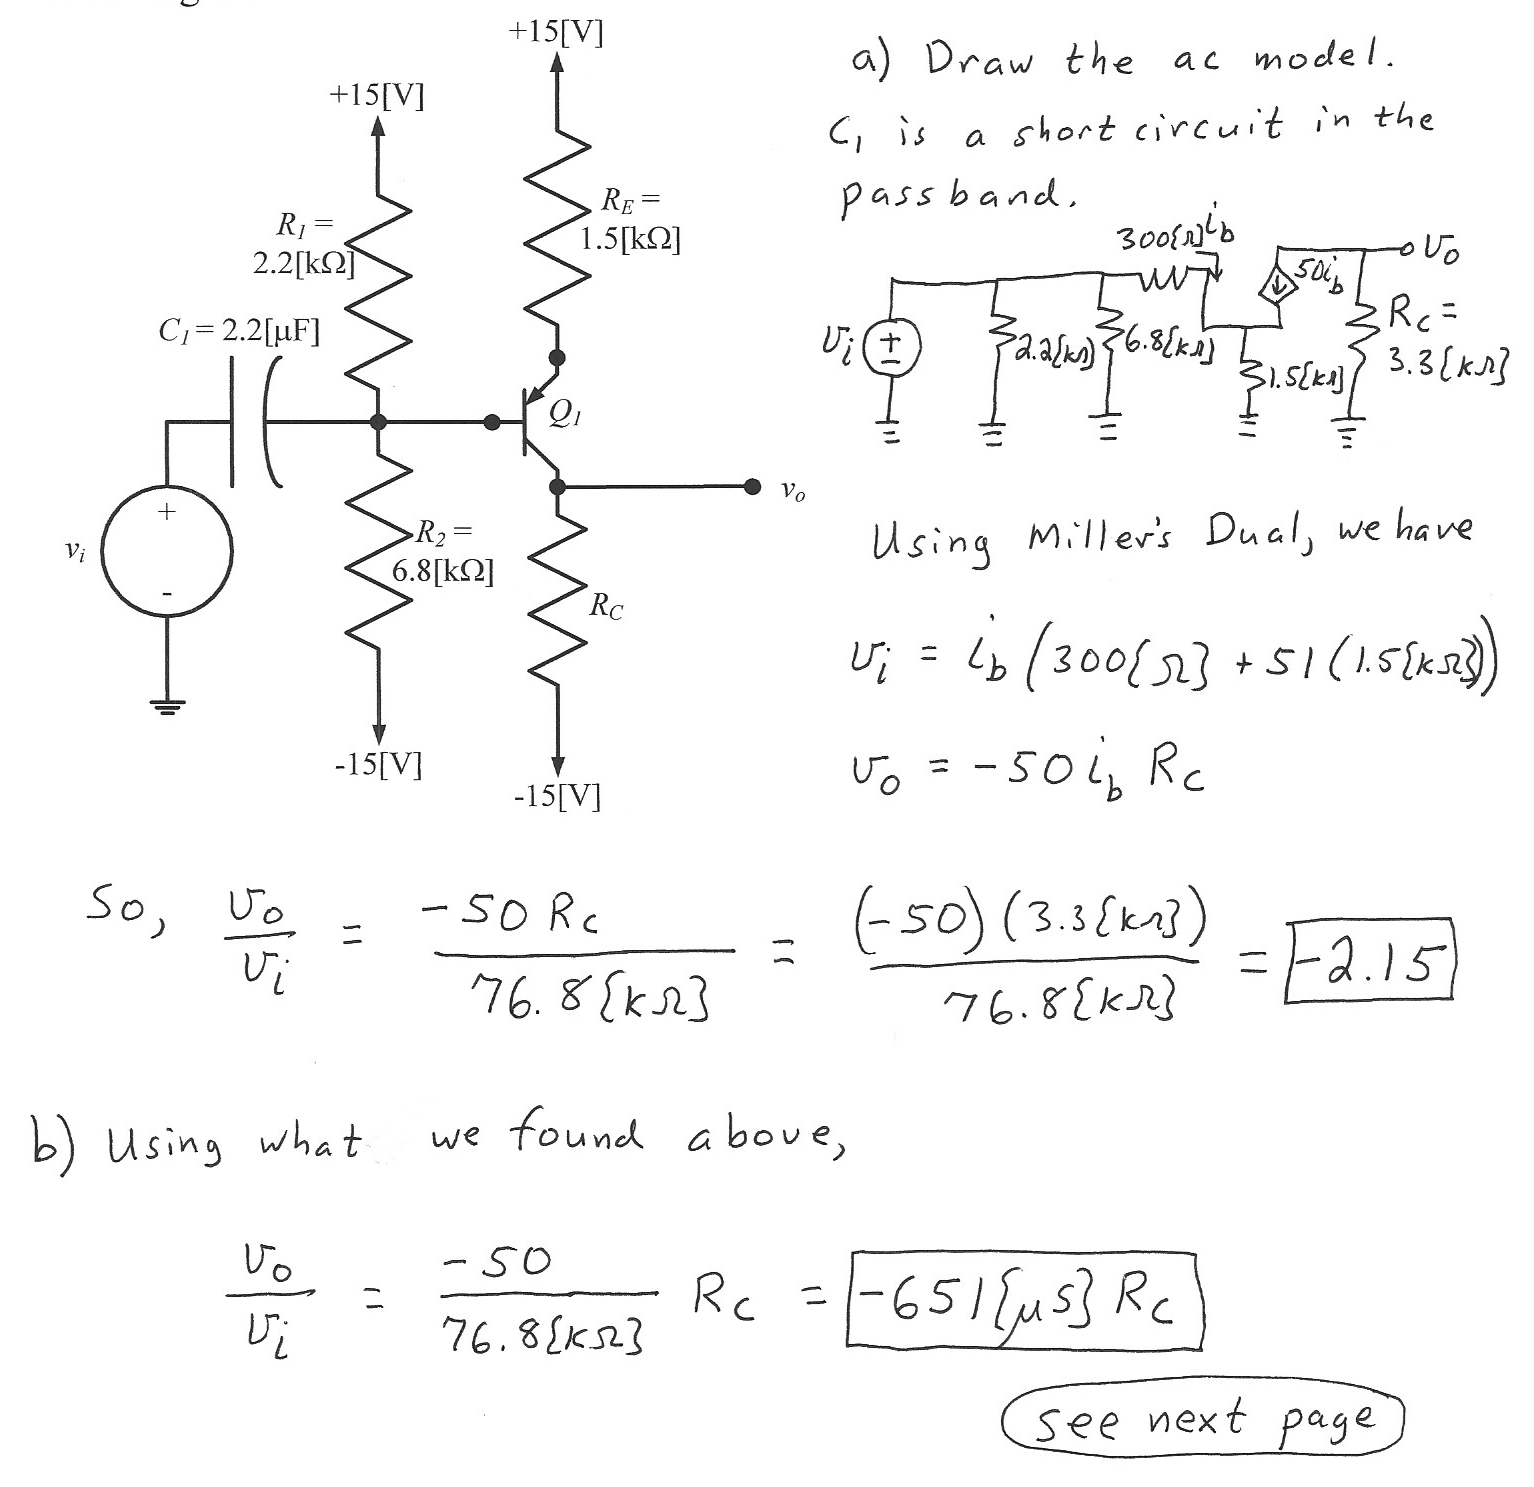 +15[V]
+15[V]
R1 =
2.2[kΩ]
RE =
1.5[kΩ]
C1 = 2.2[μF]
Q1
+
vi
-
R2 =
6.8[kΩ]
vo
RC
-15[V]
-15[V]
a) Draw the ac model.
C1 is a short circuit in the
passband.
300[Ω] ib
vo
50ib
vi
+
-
2.2[kΩ]
6.8[kΩ]
1.5[kΩ]
RC =
3.3[kΩ]
Using Miller's Dual, we have
vi = ib (300[Ω] + 51(1.5[kΩ]))
vo = -50 ib RC
So, vo/vi = -50 RC / 76.8[kΩ] = (-50)(3.3[kΩ]) / 76.8[kΩ] = -2.15
b) Using what we found above,
vo/vi = -50 / 76.8[kΩ] RC = -651[μS] RC
see next page